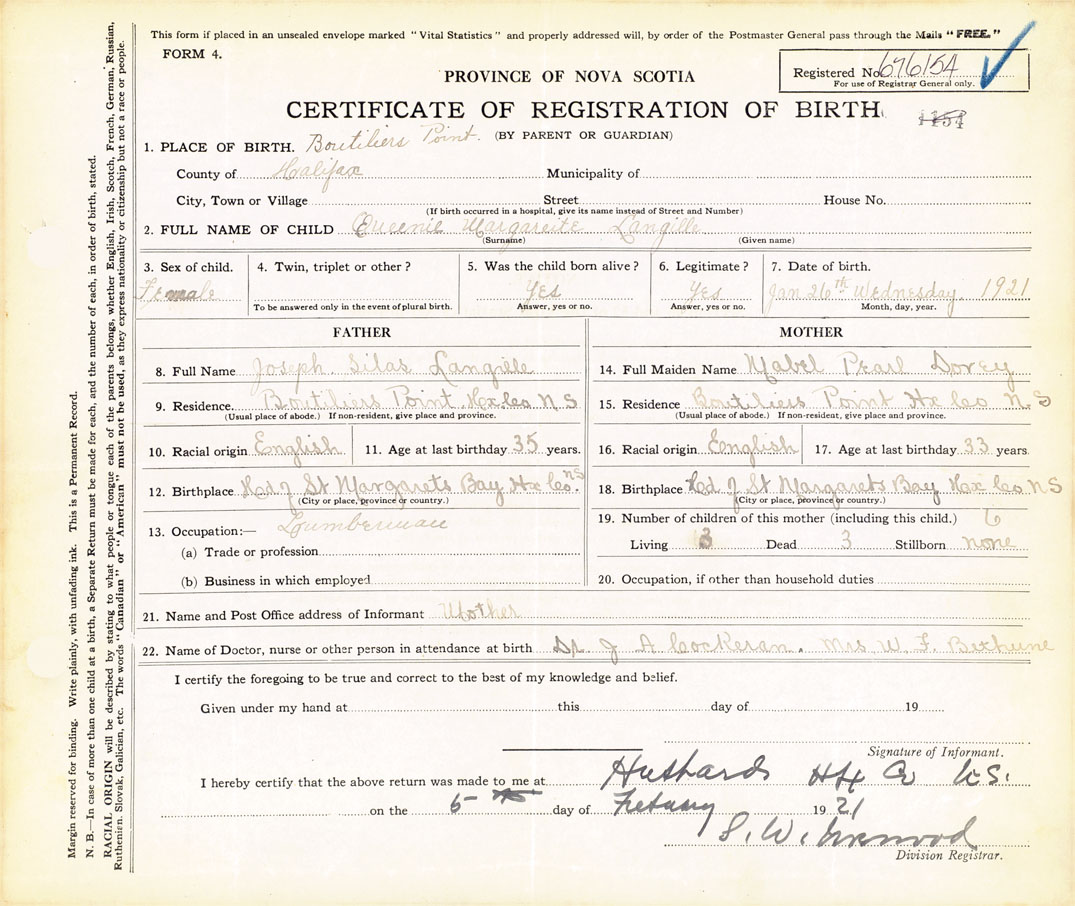 This form if placed in an unsealed envelope marked "Vital Statistics" and properly addressed will, by order of the Postmaster General pass through the Mails "FREE."
FORM 4.
Registered No. 676154
For use of Registrar General only.
PROVINCE OF NOVA SCOTIA
CERTIFICATE OF REGISTRATION OF BIRTH
(BY PARENT OR GUARDIAN)
1. PLACE OF BIRTH. Boutiliers Point.
County of Halifax Municipality of
City, Town or Village Street House No.
(If birth occurred in a hospital, give its name instead of Street and Number)
2. FULL NAME OF CHILD Queenie Margareite Langille
(Surname) (Given name)
3. Sex of child. 4. Twin, triplet or other? 5. Was the child born alive? 6. Legitimate? 7. Date of birth.
Female Yes Yes Jan 26th Wednesday 1921
To be answered only in the event of plural birth. Answer, yes or no. Answer, yes or no. Month, day, year.
FATHER
8. Full Name Joseph Silas Langille
9. Residence. Boutiliers Point Hx Co N S
(Usual place of abode.) If non-resident, give place and province.
10. Racial origin English 11. Age at last birthday 35 years.
12. Birthplace Hd of St Margarets Bay Hx Co. N S
(City or place, province or country.)
13. Occupation:— Loumberman
(a) Trade or profession
(b) Business in which employed
MOTHER
14. Full Maiden Name Mabel Pearl Dorey
15. Residence Boutiliers Point Hx Co N. S
(Usual place of abode.) If non-resident, give place and province.
16. Racial origin English 17. Age at last birthday 33 years.
18. Birthplace Hd of St Margarets Bay Hx Co N S
(City or place, province or country.)
19. Number of children of this mother (including this child.) 6
Living 3 Dead 3 Stillborn none
20. Occupation, if other than household duties
21. Name and Post Office address of Informant Mother
22. Name of Doctor, nurse or other person in attendance at birth Dr. J A Cockeran. Mrs W. F. Bethune
I certify the foregoing to be true and correct to the best of my knowledge and belief.
Given under my hand at this day of 19
Signature of Informant.
I hereby certify that the above return was made to me at Hubbards Hfx Co N.S.
on the 5 day of Febuary 1921
S. W.
Division Registrar.
Margin reserved for binding. Write plainly, with unfading ink. This is a Permanent Record.
N. B.—In case of more than one child at a birth, a Separate Return must be made for each, and the number of each, in order of birth, stated.
RACIAL ORIGIN will be described by stating to what people or tongue each of the parents belongs, whether English, Irish, Scotch, French, German, Russian,
Ruthenian, Slovak, Galician, etc. The words "Canadian" or "American" must not be used, as they express nationality or citizenship but not a race or people.